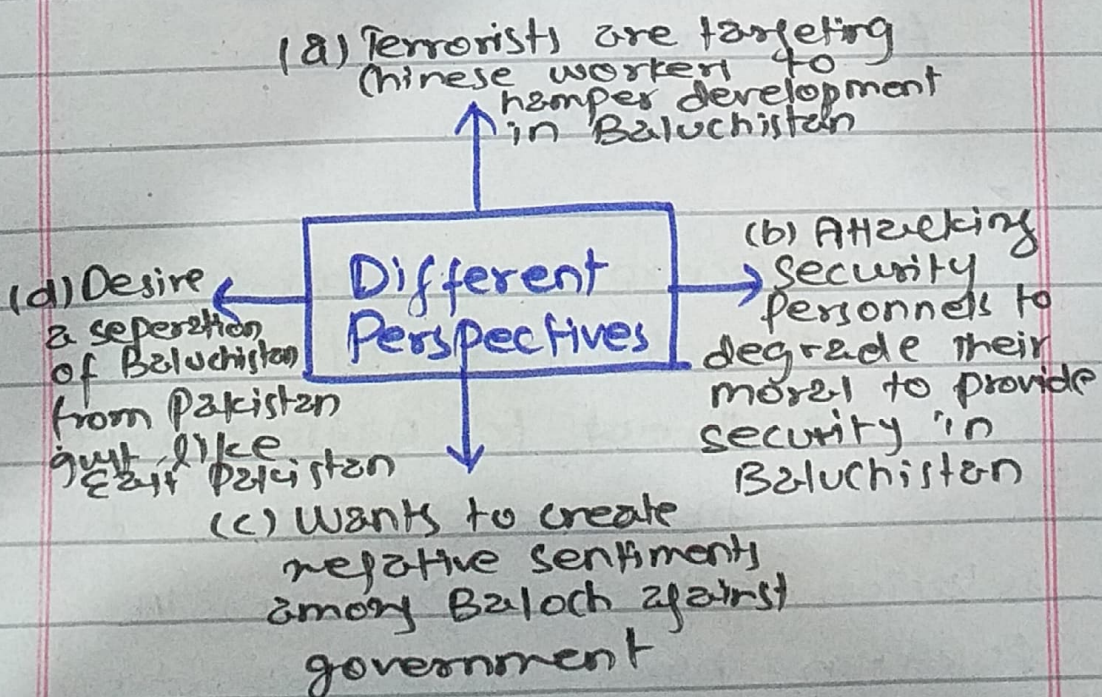 (a) Terrorists are targeting
Chinese workers to
hamper development
in Baluchistan
Different
Perspectives
(b) Attacking
security
Personnels to
degrade their
moral to provide
security in
Baluchistan
(c) Wants to create
negative sentiments
among Baloch against
government
(d) Desire
a seperation
of Baluchistan
from Pakistan
like
East Pakistan